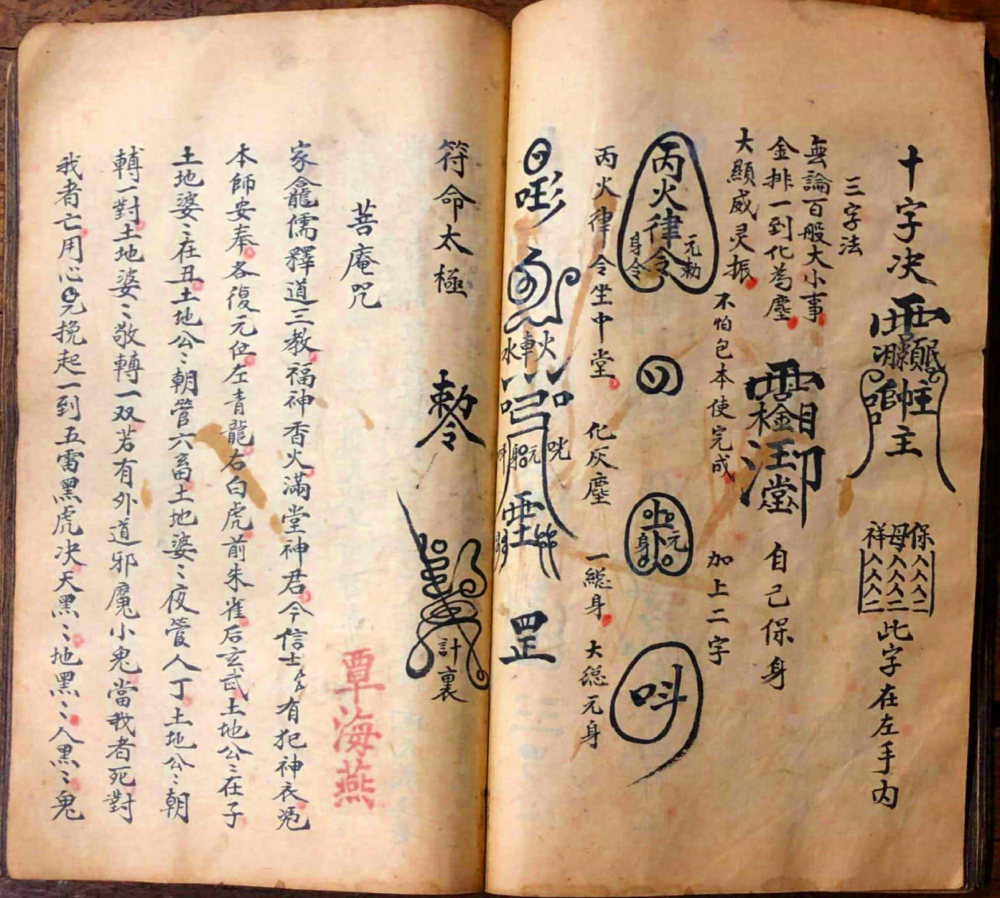 十字决
主
保母祥
此字在左手内
三字法
無論百般大小事
金排一到化為塵
大顯威灵振
不怕包本使完成
自己保身
加上二字
丙火律令
元勅
身令
丙火律令坐中堂
化灰塵
一総身
大総元身
元
身
水車火
罡
符命太極
勅令
計裏
菩庵咒
覃海燕
家龕儒釋道三教福神香火滿堂神君今信士〻有犯神衣
本師安奉各復元位左青龍右白虎前朱雀后玄武土地公〻在子
土地婆〻在丑土地公〻朝管六畜土地婆〻夜管人丁土地公〻朝
轉一對土地婆〻敬轉一双若有外道邪魔小鬼當我者死對
我者亡用心兇挽起一到五雷黑虎决天黑〻地黑〻人黑〻鬼